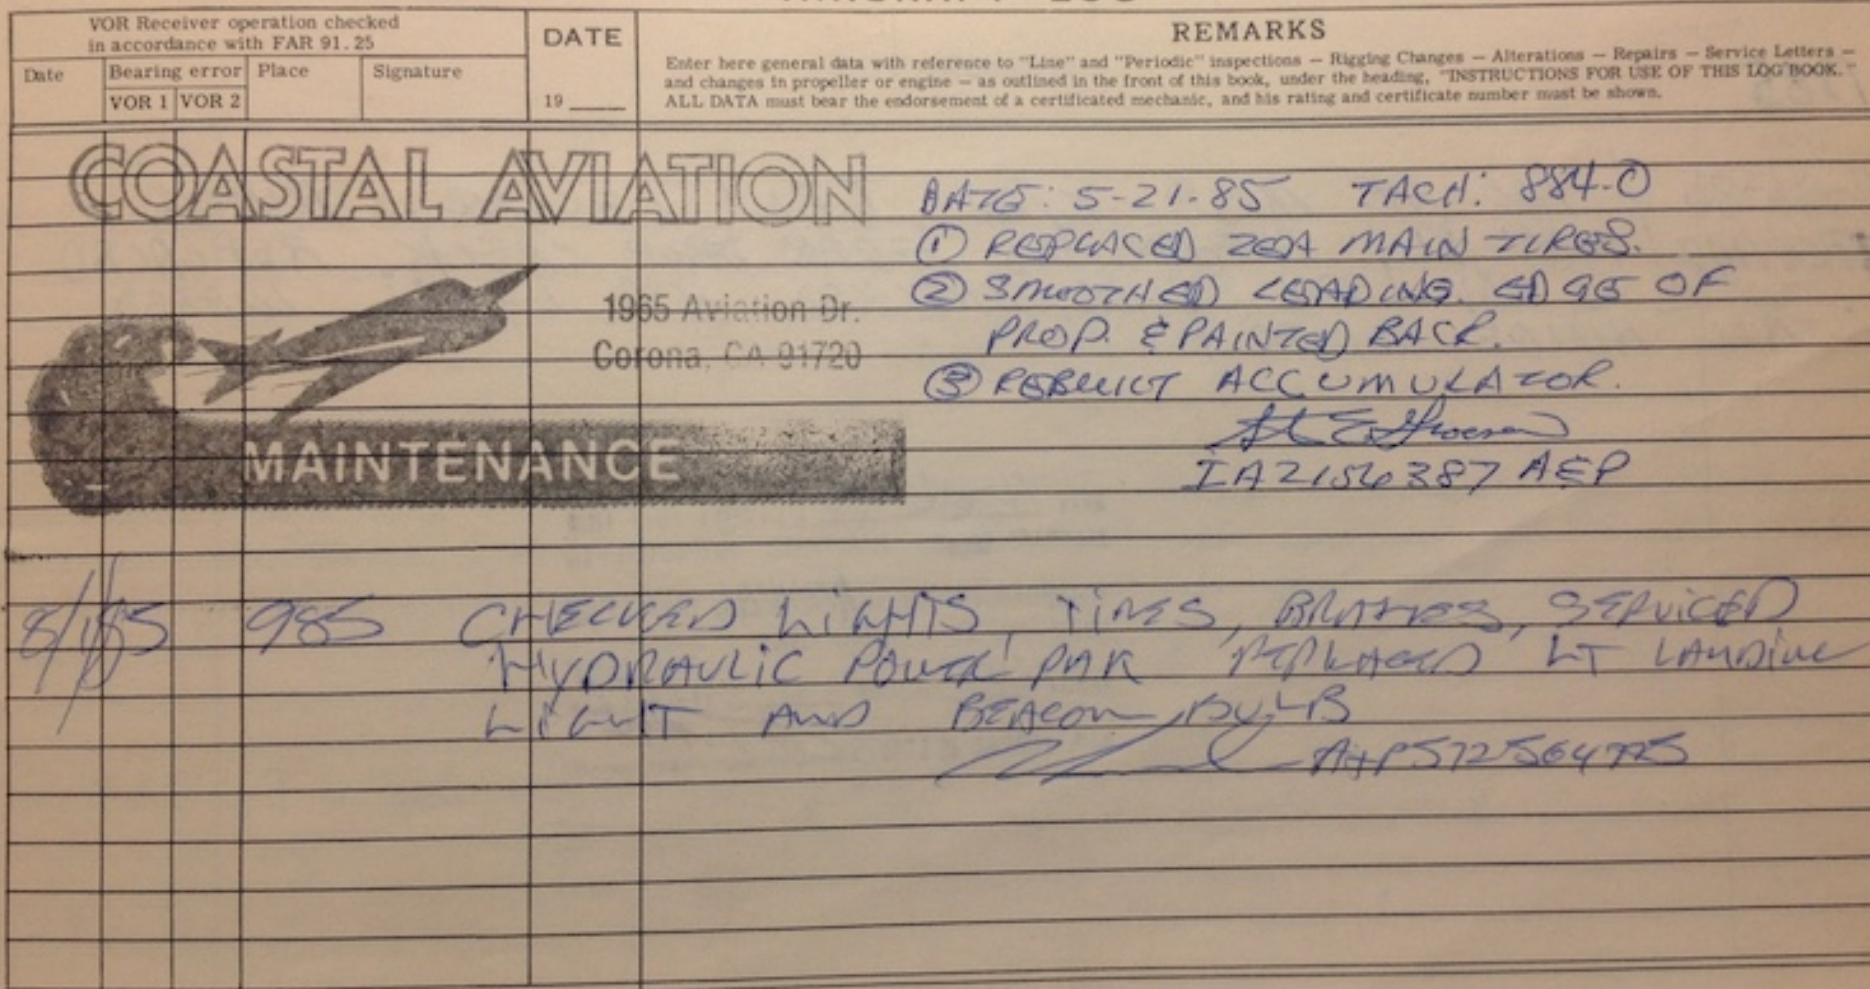 VOR Receiver operation checked
in accordance with FAR 91.25
Date
Bearing error
VOR 1 VOR 2
Place
Signature
DATE
19
REMARKS
Enter here general data with reference to "Line" and "Periodic" inspections — Rigging Changes — Alterations — Repairs — Service Letters —
and changes in propeller or engine — as outlined in the front of this book, under the heading, "INSTRUCTIONS FOR USE OF THIS LOG BOOK."
ALL DATA must bear the endorsement of a certificated mechanic, and his rating and certificate number must be shown.
COASTAL AVIATION
1965 Aviation Dr.
Corona, CA 91720
MAINTENANCE
DATE: 5-21-85 TACH: 884.0
① REPLACED MAIN TIRES.
② SMOOTHED LEADING EDGE OF
PROP. & PAINTED BACK.
③ REBUILT ACCUMULATOR.
IA2156387 A&P
8/1/85 985 CHECKED LIGHTS, TIRES, BRAKES, SERVICED
HYDRAULIC POWER PAK REPLACED LT LANDING
LIGHT AND BEACON BULB
A+P